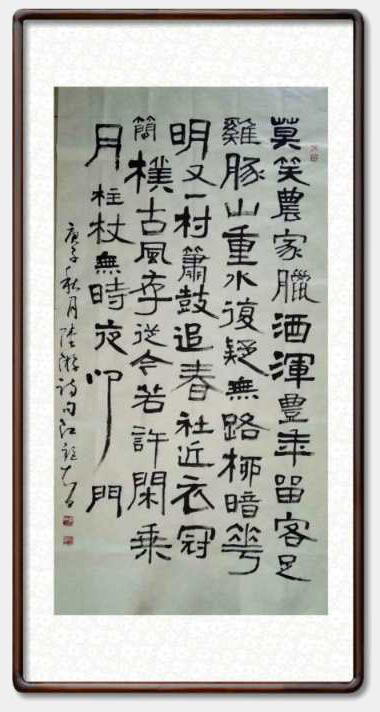 莫笑農家臘酒渾豐年留客足
雞豚山重水復疑無路柳暗花
明又一村簫鼓追春社近衣冠
簡樸古風存從今若許閑乘
月柱杖無時夜叩門
庚子秋月陸游詩句江